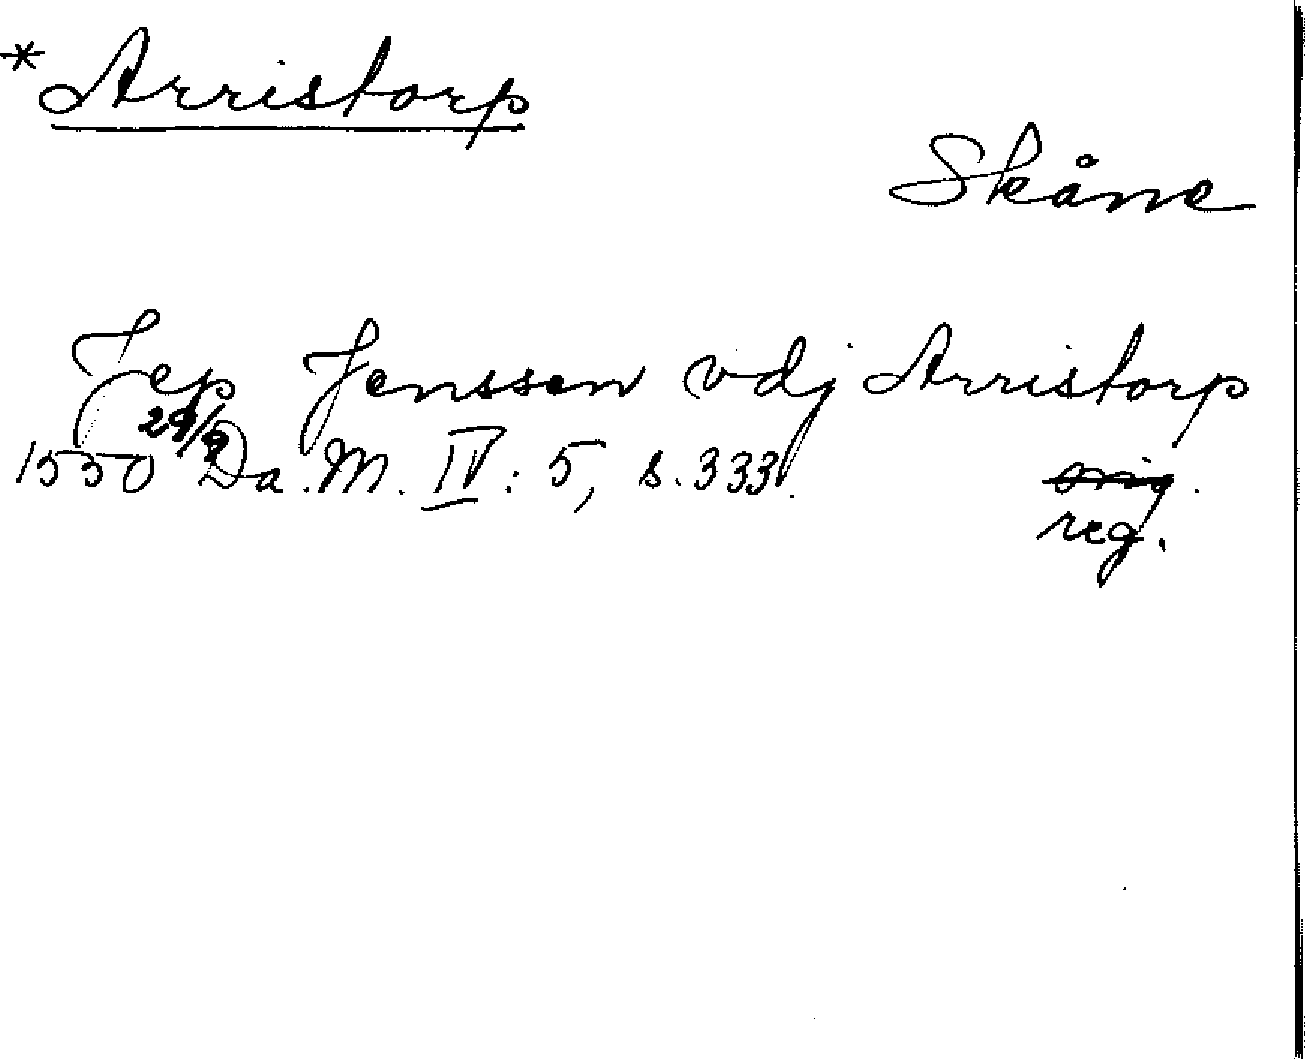 * Arristorp
Skåne
Jep Jenssen vdj Arristorp
1550 29/9 Da. M. IV: 5, s. 333. orig.
reg.